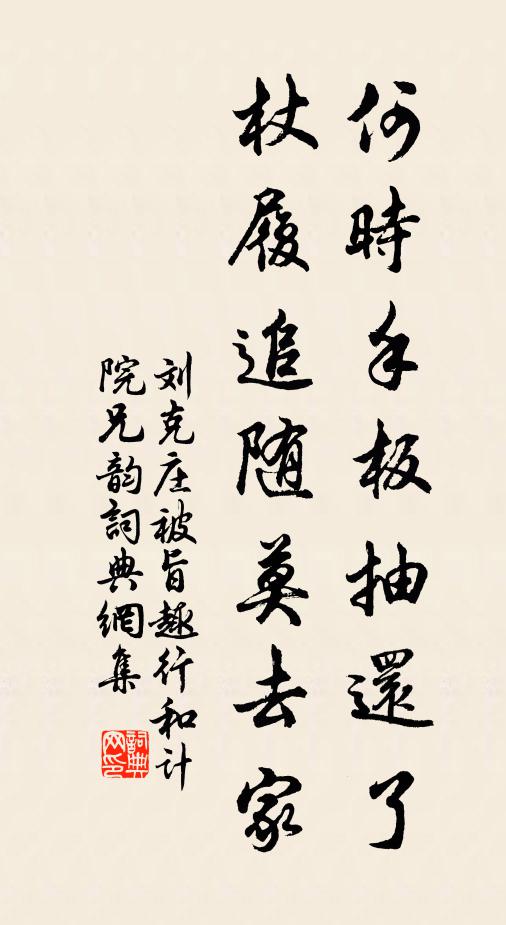 何時手板抽還了
杖履追随莫去家
刘克庄被旨趣行和计
院兄韵詞典網集
詞典网印